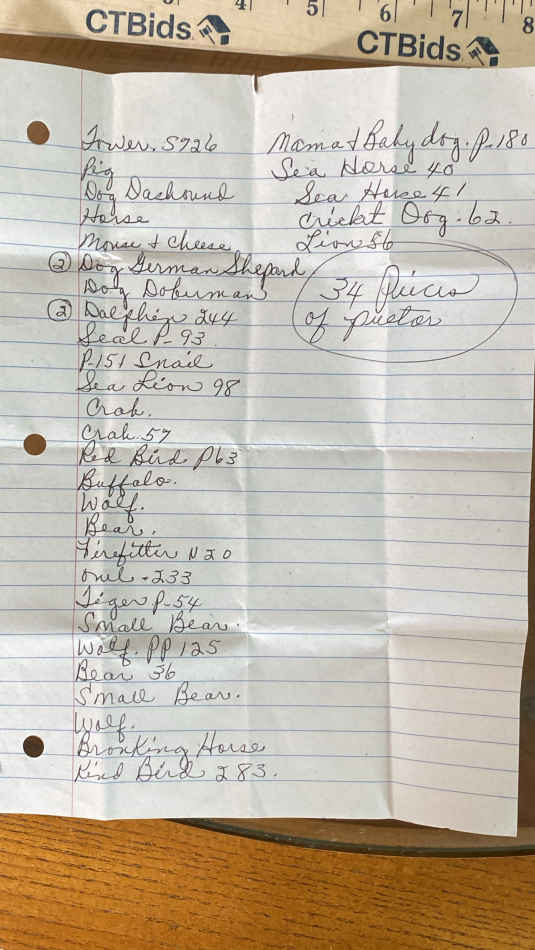 4 5 6 7 8
CTBids
CTBids
Tower. S726
Pig
Dog Dachound
Horse
Mouse & Cheese
② Dog German Shepard
Dog Doberman
② Dalphin 244
Seal P-93
P-151 Snail
Sea Lion 98
Crab.
Crab 57
Red Bird P63
Buffalo.
Wolf.
Bear.
Firefitter N20
owl - 233
Tiger P-54
Small Bear.
Wolf. PP 125
Bear 36
Small Bear.
Wolf.
BronKing Horse
Kind Bird 283.
Mama & Baby dog. P-180
Sea Horse 40
Sea Horse 41
Cricket Dog. 62.
Lion 56
34 Pieces
of puctor